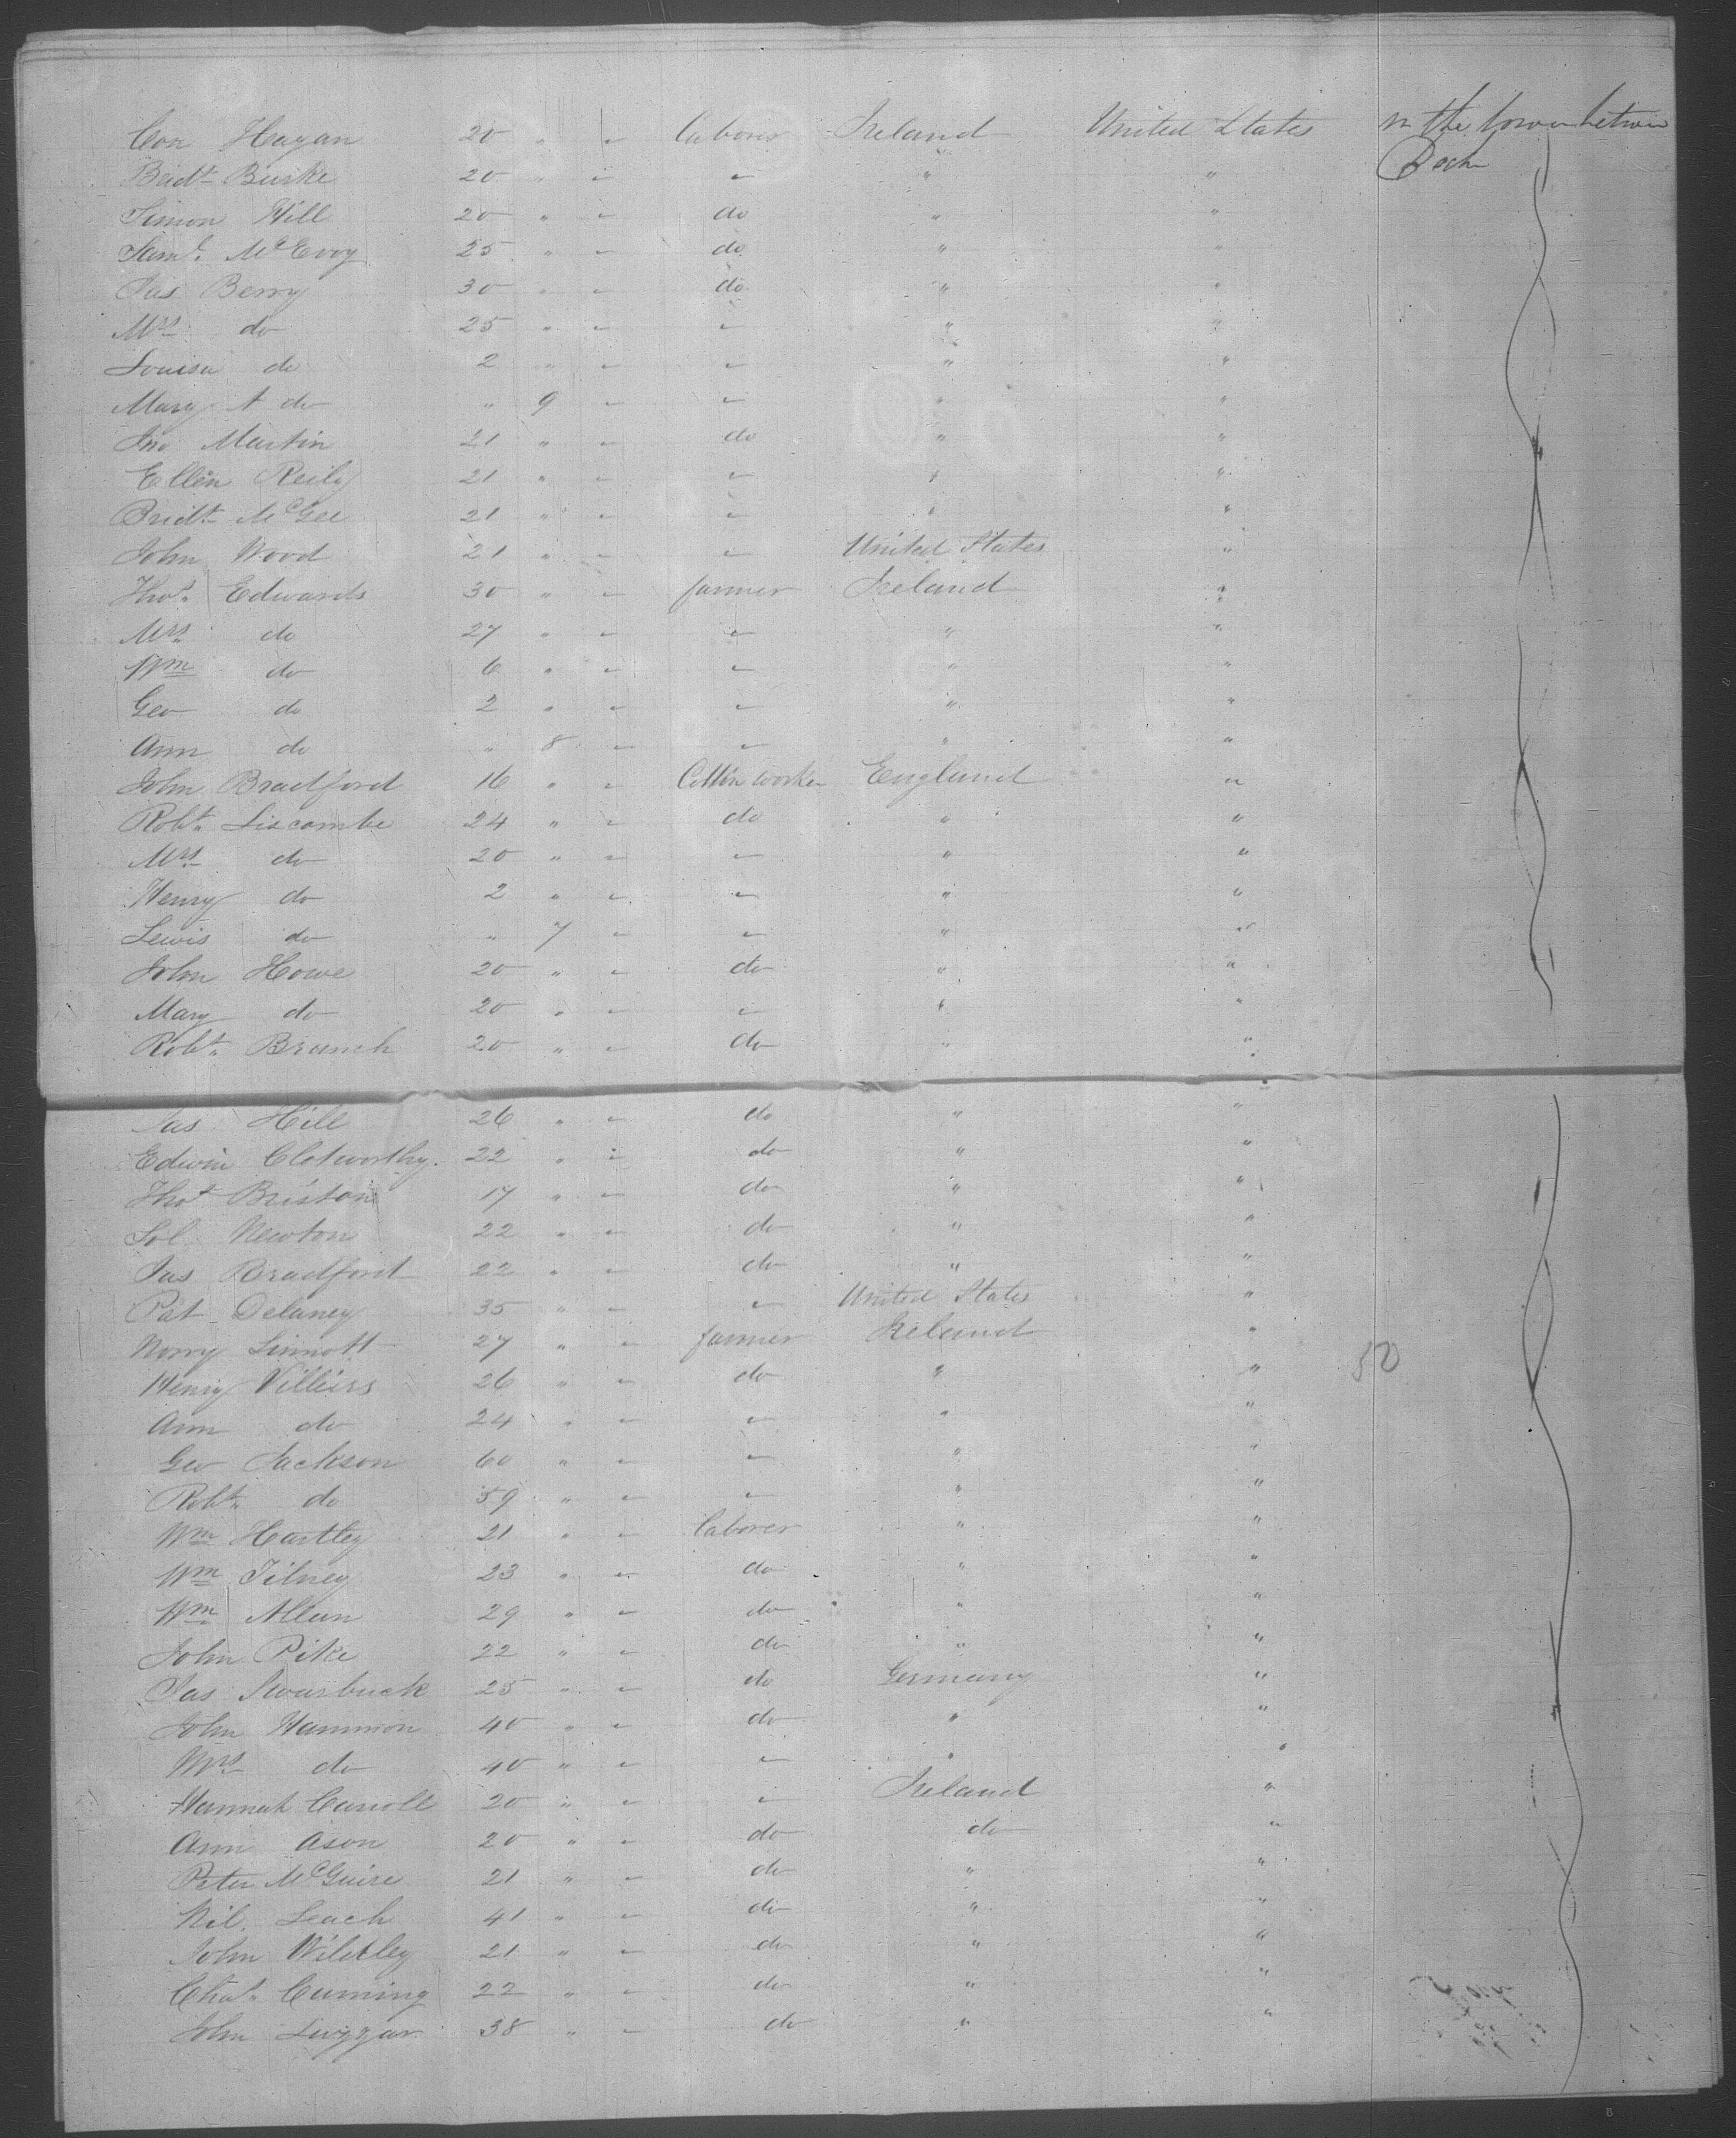 Con Hagan 20 " " laborer Ireland United States In the lower between Deck
Bridt Burke 20 " " " " "
Simon Hill 20 " " do " "
Saml McEvoy 25 " " do " "
Jas Berry 30 " " do " "
Mrs do 25 " " " " "
Louisa do 2 " " " " "
Mary A do " 9 " " " "
Jno Martin 21 " " do " "
Ellen Reily 21 " " " " "
Bridt McGee 21 " " " " "
John Wood 21 " " " United States "
Thos Edwards 30 " " farmer Ireland "
Mrs do 27 " " " " "
Wm do 6 " " " " "
Geo do 2 " " " " "
Ann do " 8 " " " "
John Bradford 16 " " Cotton worker England "
Robt Liscombe 24 " " do " "
Mrs do 20 " " " " "
Henry do 2 " " " " "
Lewis do " 7 " " " "
John Howe 20 " " do " "
Mary do 20 " " " " "
Robt Branch 20 " " do " "
Jas Hill 26 " " do " "
Edwin Clatworthy 22 " " do " "
Thos Briston 17 " " do " "
Sol Newton 22 " " do " "
Jas Bradford 22 " " do " "
Pat Delaney 35 " " " United States "
Norry Sinnott 27 " " farmer Ireland "
Henry Villiers 26 " " do " " 50
Ann do 24 " " " " "
Geo Jackson 60 " " " " "
Robt do 59 " " " " "
Wm Hartley 21 " " laborer " "
Wm Tilney 23 " " do " "
Wm Allan 29 " " do " "
John Pike 22 " " do " "
Jas Swarbuck 25 " " do Germany "
John Hammon 40 " " do " "
Mrs do 40 " " " " "
Hannah Carroll 20 " " " Ireland "
Ann Ason 20 " " do do "
Peter McGuire 21 " " do " "
Wil. Leach 41 " " do " "
John 21 " " do " "
Chas Cuming 22 " " do " "
John Luggar 38 " " do " "